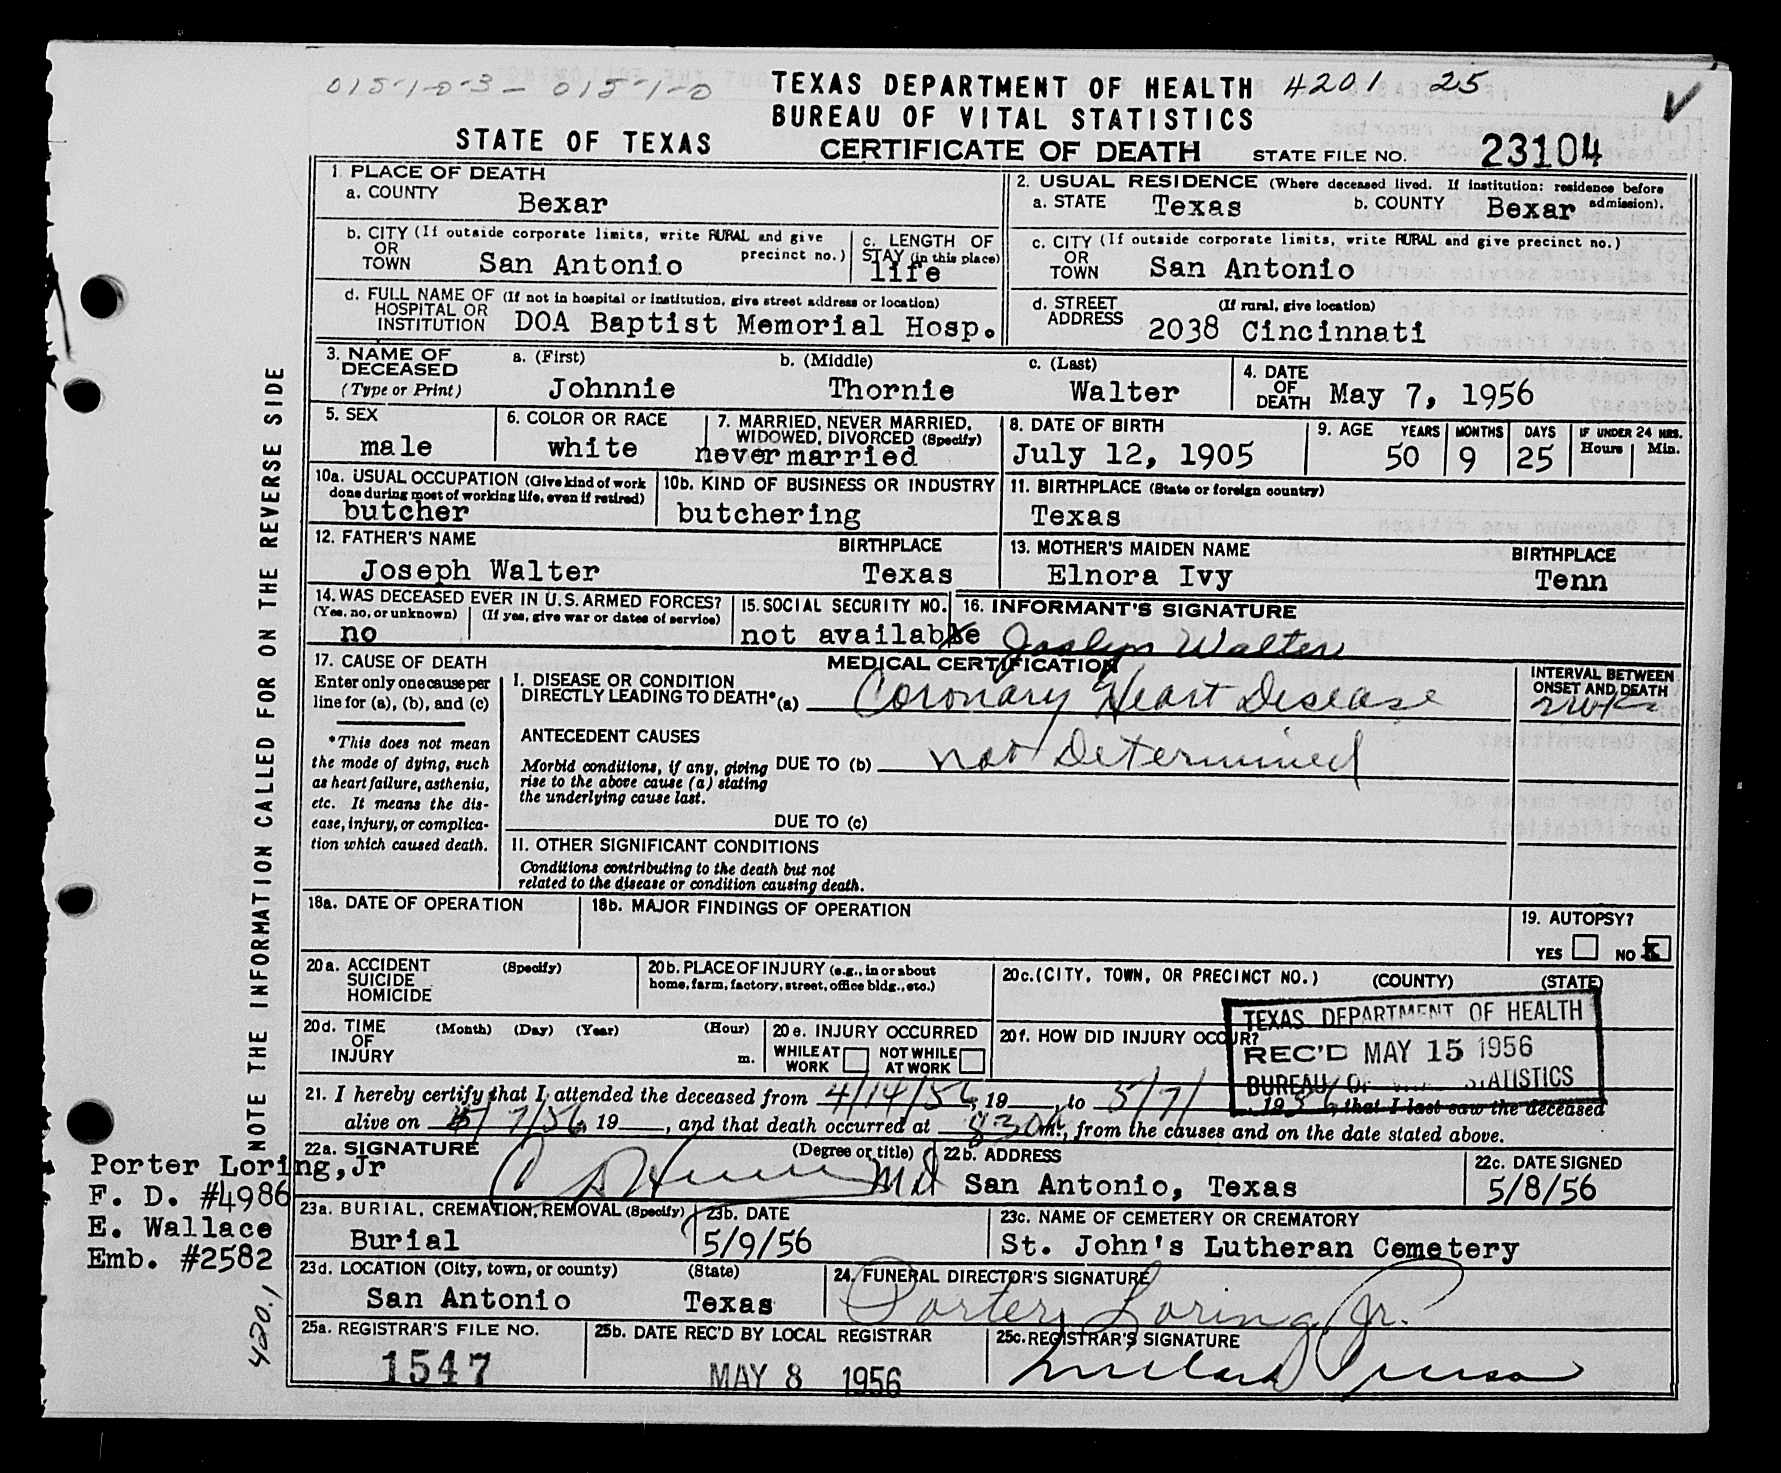 015-1-0-3- 015-1-0
TEXAS DEPARTMENT OF HEALTH 4201 25
BUREAU OF VITAL STATISTICS
STATE OF TEXAS
CERTIFICATE OF DEATH STATE FILE NO. 23104
NOTE THE INFORMATION CALLED FOR ON THE REVERSE SIDE
1. PLACE OF DEATH
a. COUNTY Bexar
2. USUAL RESIDENCE (Where deceased lived. If institution: residence before admission).
a. STATE Texas b. COUNTY Bexar
b. CITY (If outside corporate limits, write RURAL and give precinct no.)
OR
TOWN San Antonio
c. LENGTH OF
STAY (in this place)
life
c. CITY (If outside corporate limits, write RURAL and give precinct no.)
OR
TOWN San Antonio
d. FULL NAME OF (If not in hospital or institution, give street address or location)
HOSPITAL OR
INSTITUTION DOA Baptist Memorial Hosp.
d. STREET (If rural, give location)
ADDRESS 2038 Cincinnati
3. NAME OF DECEASED
(Type or Print)
a. (First) b. (Middle) c. (Last)
Johnnie Thornie Walter
4. DATE
OF
DEATH May 7, 1956
5. SEX
male
6. COLOR OR RACE
white
7. MARRIED, NEVER MARRIED,
WIDOWED, DIVORCED (Specify)
never married
8. DATE OF BIRTH
July 12, 1905
9. AGE YEARS MONTHS DAYS IF UNDER 24 HRS.
Hours Min.
50 9 25
10a. USUAL OCCUPATION (Give kind of work
done during most of working life, even if retired)
butcher
10b. KIND OF BUSINESS OR INDUSTRY
butchering
11. BIRTHPLACE (State or foreign country)
Texas
12. FATHER'S NAME BIRTHPLACE
Joseph Walter Texas
13. MOTHER'S MAIDEN NAME BIRTHPLACE
Elnora Ivy Tenn
14. WAS DECEASED EVER IN U.S. ARMED FORCES?
(Yes, no, or unknown) (If yes, give war or dates of service)
no
15. SOCIAL SECURITY NO.
not available
16. INFORMANT'S SIGNATURE
Joslyn Walter
17. CAUSE OF DEATH
Enter only one cause per
line for (a), (b), and (c)
*This does not mean
the mode of dying, such
as heart failure, asthenia,
etc. It means the dis-
ease, injury, or complica-
tion which caused death.
MEDICAL CERTIFICATION
I. DISEASE OR CONDITION
DIRECTLY LEADING TO DEATH*(a) Coronary Heart Disease
INTERVAL BETWEEN
ONSET AND DEATH
2 wks
ANTECEDENT CAUSES
Morbid conditions, if any, giving
rise to the above cause (a) stating
the underlying cause last.
DUE TO (b) not Determined
DUE TO (c)
II. OTHER SIGNIFICANT CONDITIONS
Conditions contributing to the death but not
related to the disease or condition causing death.
18a. DATE OF OPERATION
18b. MAJOR FINDINGS OF OPERATION
19. AUTOPSY?
YES NO X
20a. ACCIDENT (Specify)
SUICIDE
HOMICIDE
20b. PLACE OF INJURY (e.g., in or about
home, farm, factory, street, office bldg., etc.)
20c. (CITY, TOWN, OR PRECINCT NO.) (COUNTY) (STATE)
20d. TIME (Month) (Day) (Year) (Hour)
OF
INJURY m.
20e. INJURY OCCURRED
WHILE AT WORK NOT WHILE AT WORK
20f. HOW DID INJURY OCCUR?
TEXAS DEPARTMENT OF HEALTH
REC'D MAY 15 1956
BUREAU OF STATISTICS
21. I hereby certify that I attended the deceased from 4/14/56, 19 , to 5/7/ , 1956, that I last saw the deceased
alive on 5/7/56, 19 , and that death occurred at 830 m., from the causes and on the date stated above.
22a. SIGNATURE (Degree or title)
MD
22b. ADDRESS
San Antonio, Texas
22c. DATE SIGNED
5/8/56
Porter Loring, Jr
F. D. #4986
E. Wallace
Emb. #2582
420.1
23a. BURIAL, CREMATION, REMOVAL (Specify)
Burial
23b. DATE
5/9/56
23c. NAME OF CEMETERY OR CREMATORY
St. John's Lutheran Cemetery
23d. LOCATION (City, town, or county) (State)
San Antonio Texas
24. FUNERAL DIRECTOR'S SIGNATURE
Porter Loring, Jr.
25a. REGISTRAR'S FILE NO.
1547
25b. DATE REC'D BY LOCAL REGISTRAR
MAY 8 1956
25c. REGISTRAR'S SIGNATURE